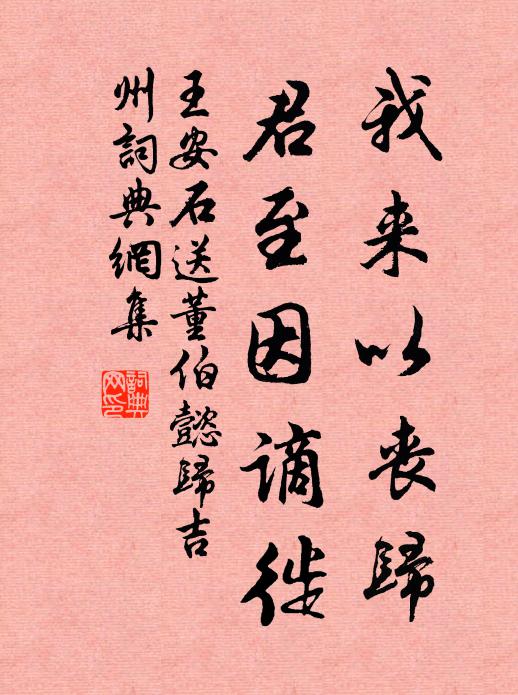 我来以丧歸
君至因谪徙
王安石送董伯懿歸吉
州詞典網集
詞典
网印